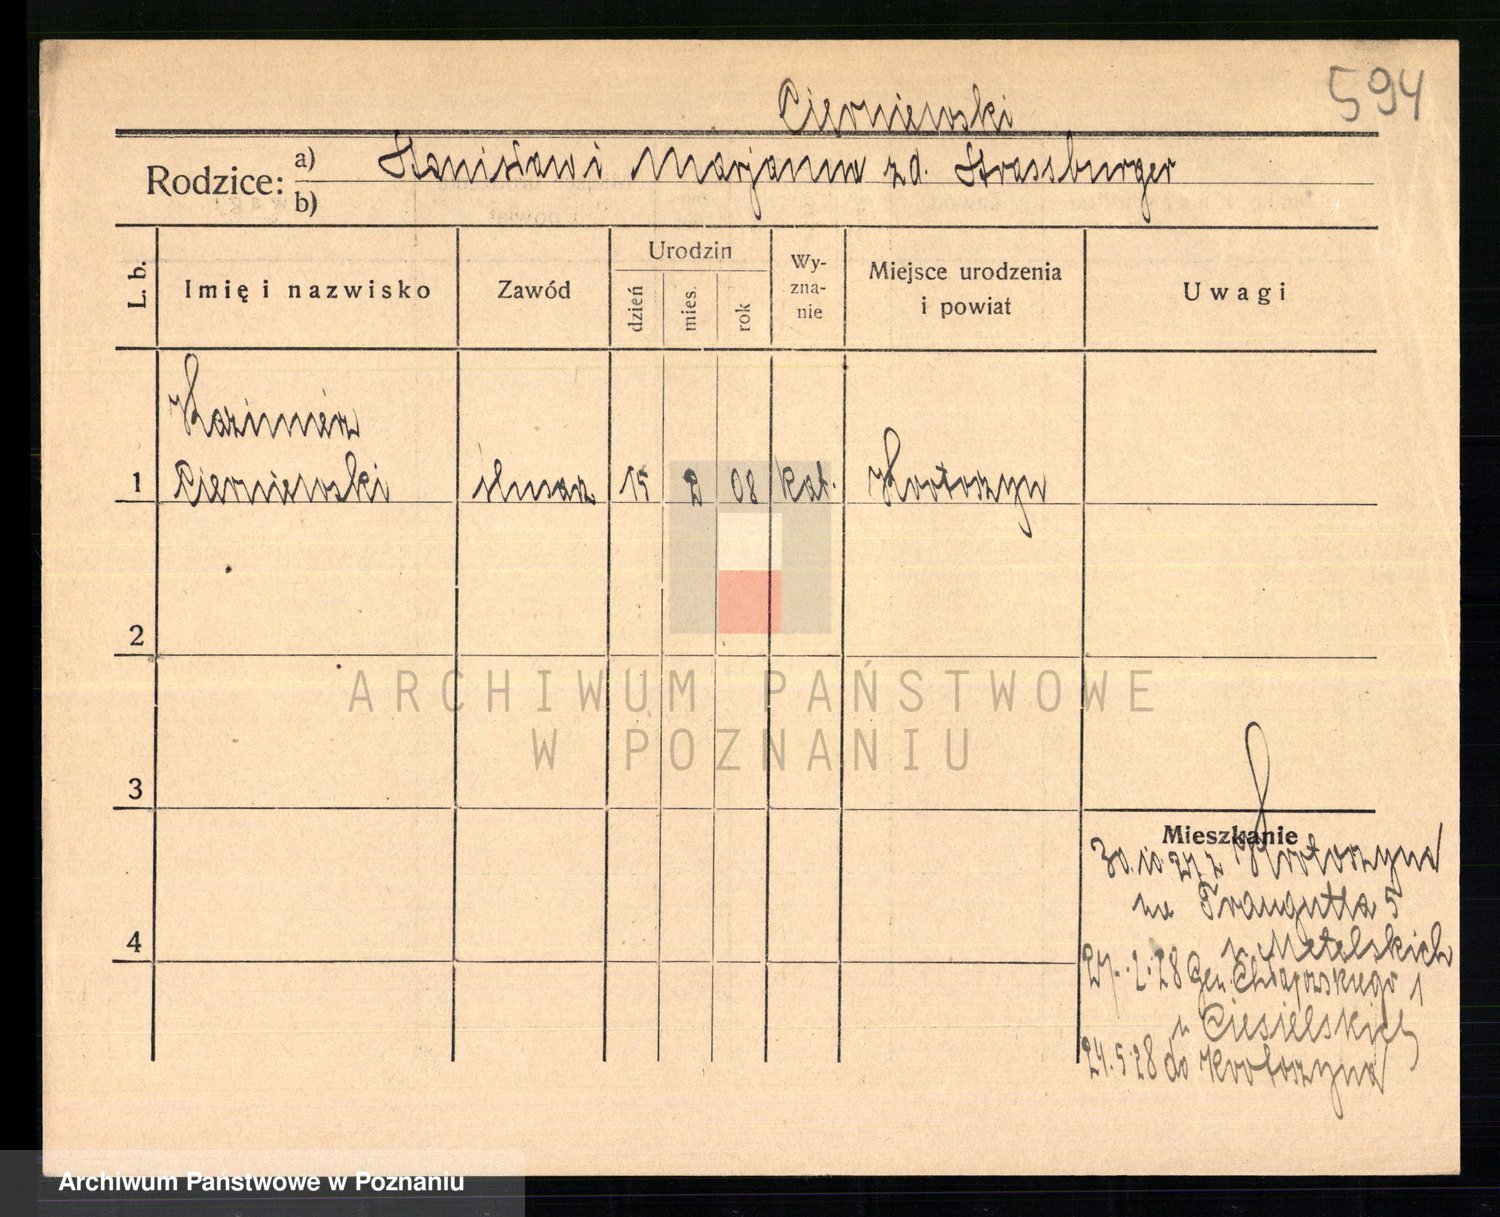 594
Cierniewski
Rodzice: a) Stanisław i Marjanna z d. Strassburger
b)
L. b.
Imię i nazwisko
Zawód
Urodzin
dzień
mies.
rok
Wy-
zna-
nie
Miejsce urodzenia
i powiat
Uwagi
Kazimierz
1 Cierniewski ślusarz 15 2 08 kat. Krotoszyn
2
3
4
Mieszkanie
30.10.27 z Krotoszyna
na Traugutta 5
u Metelskich
27.2.28 Gen. Chłapowskiego 1
u Ciesielskich
24.5.28 do Krotoszyna
ARCHIWUM PAŃSTWOWE
W POZNANIU
Archiwum Państwowe w Poznaniu